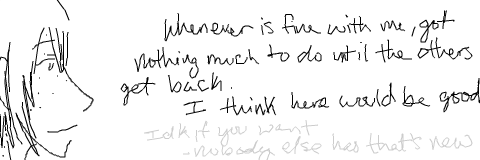 Whenever is fine with me, got
nothing much to do until the others
get back.
I think here would be good
Idk if you want
-nobody else has that's new